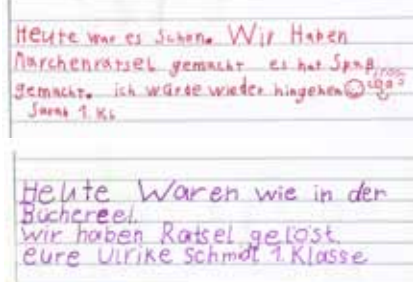 Heute war es Schön. Wir Haben
Märchenrätsel gemacht es hat Spaß
gemacht. ich würde wieder hingehen
Sarah 1. Kl
Heute Waren wie in der
Büchereei.
wir haben Rätsel gelöst.
eure Ulrike Schmdt 1. Klasse